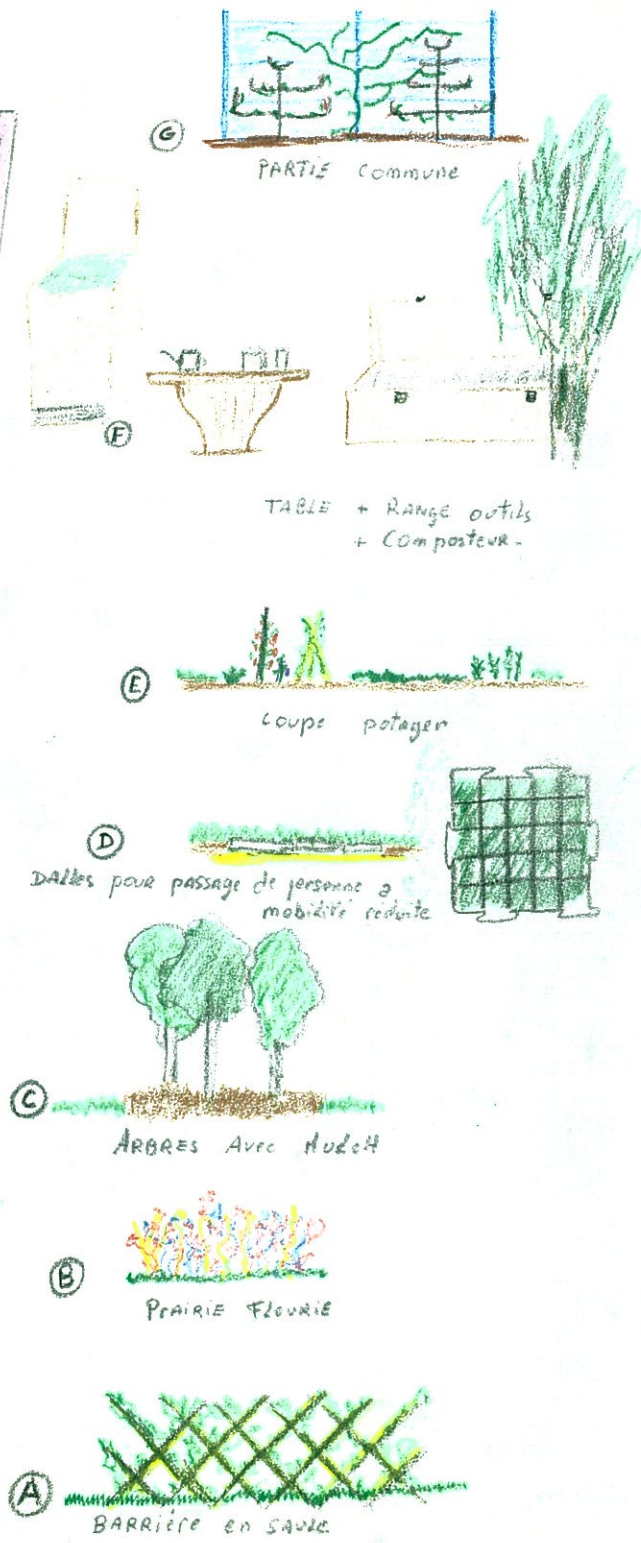 G
PARTIE Commune
F
TABLE + RANGE outils
+ Composteur.
E
Coupe potager
D
DALLes pour passage de personne a
mobilité réduite
C
ARBRES Avec MULCH
B
PrAIRIE FLEURIE
A
BARRIère en SAULE